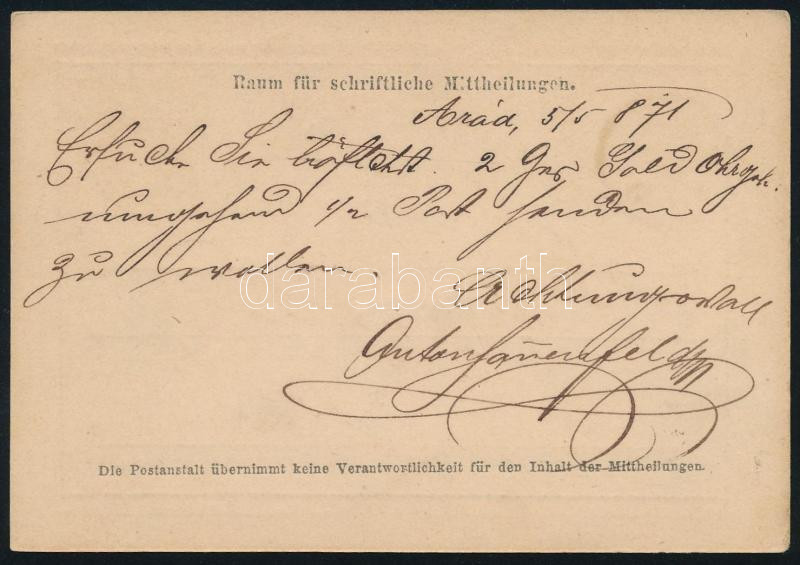 Raum für schriftliche Mittheilungen.
Arád, 5/5 871
Ersuche Sie höflichst. 2 Gold Ohrgeh.
umgehend Post senden
zu wollen.
darabanth
Achtungsvoll
Die Postanstalt übernimmt keine Verantwortlichkeit für den Inhalt der Mittheilungen.